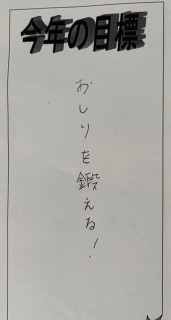 今年の目標
おしりを鍛える！